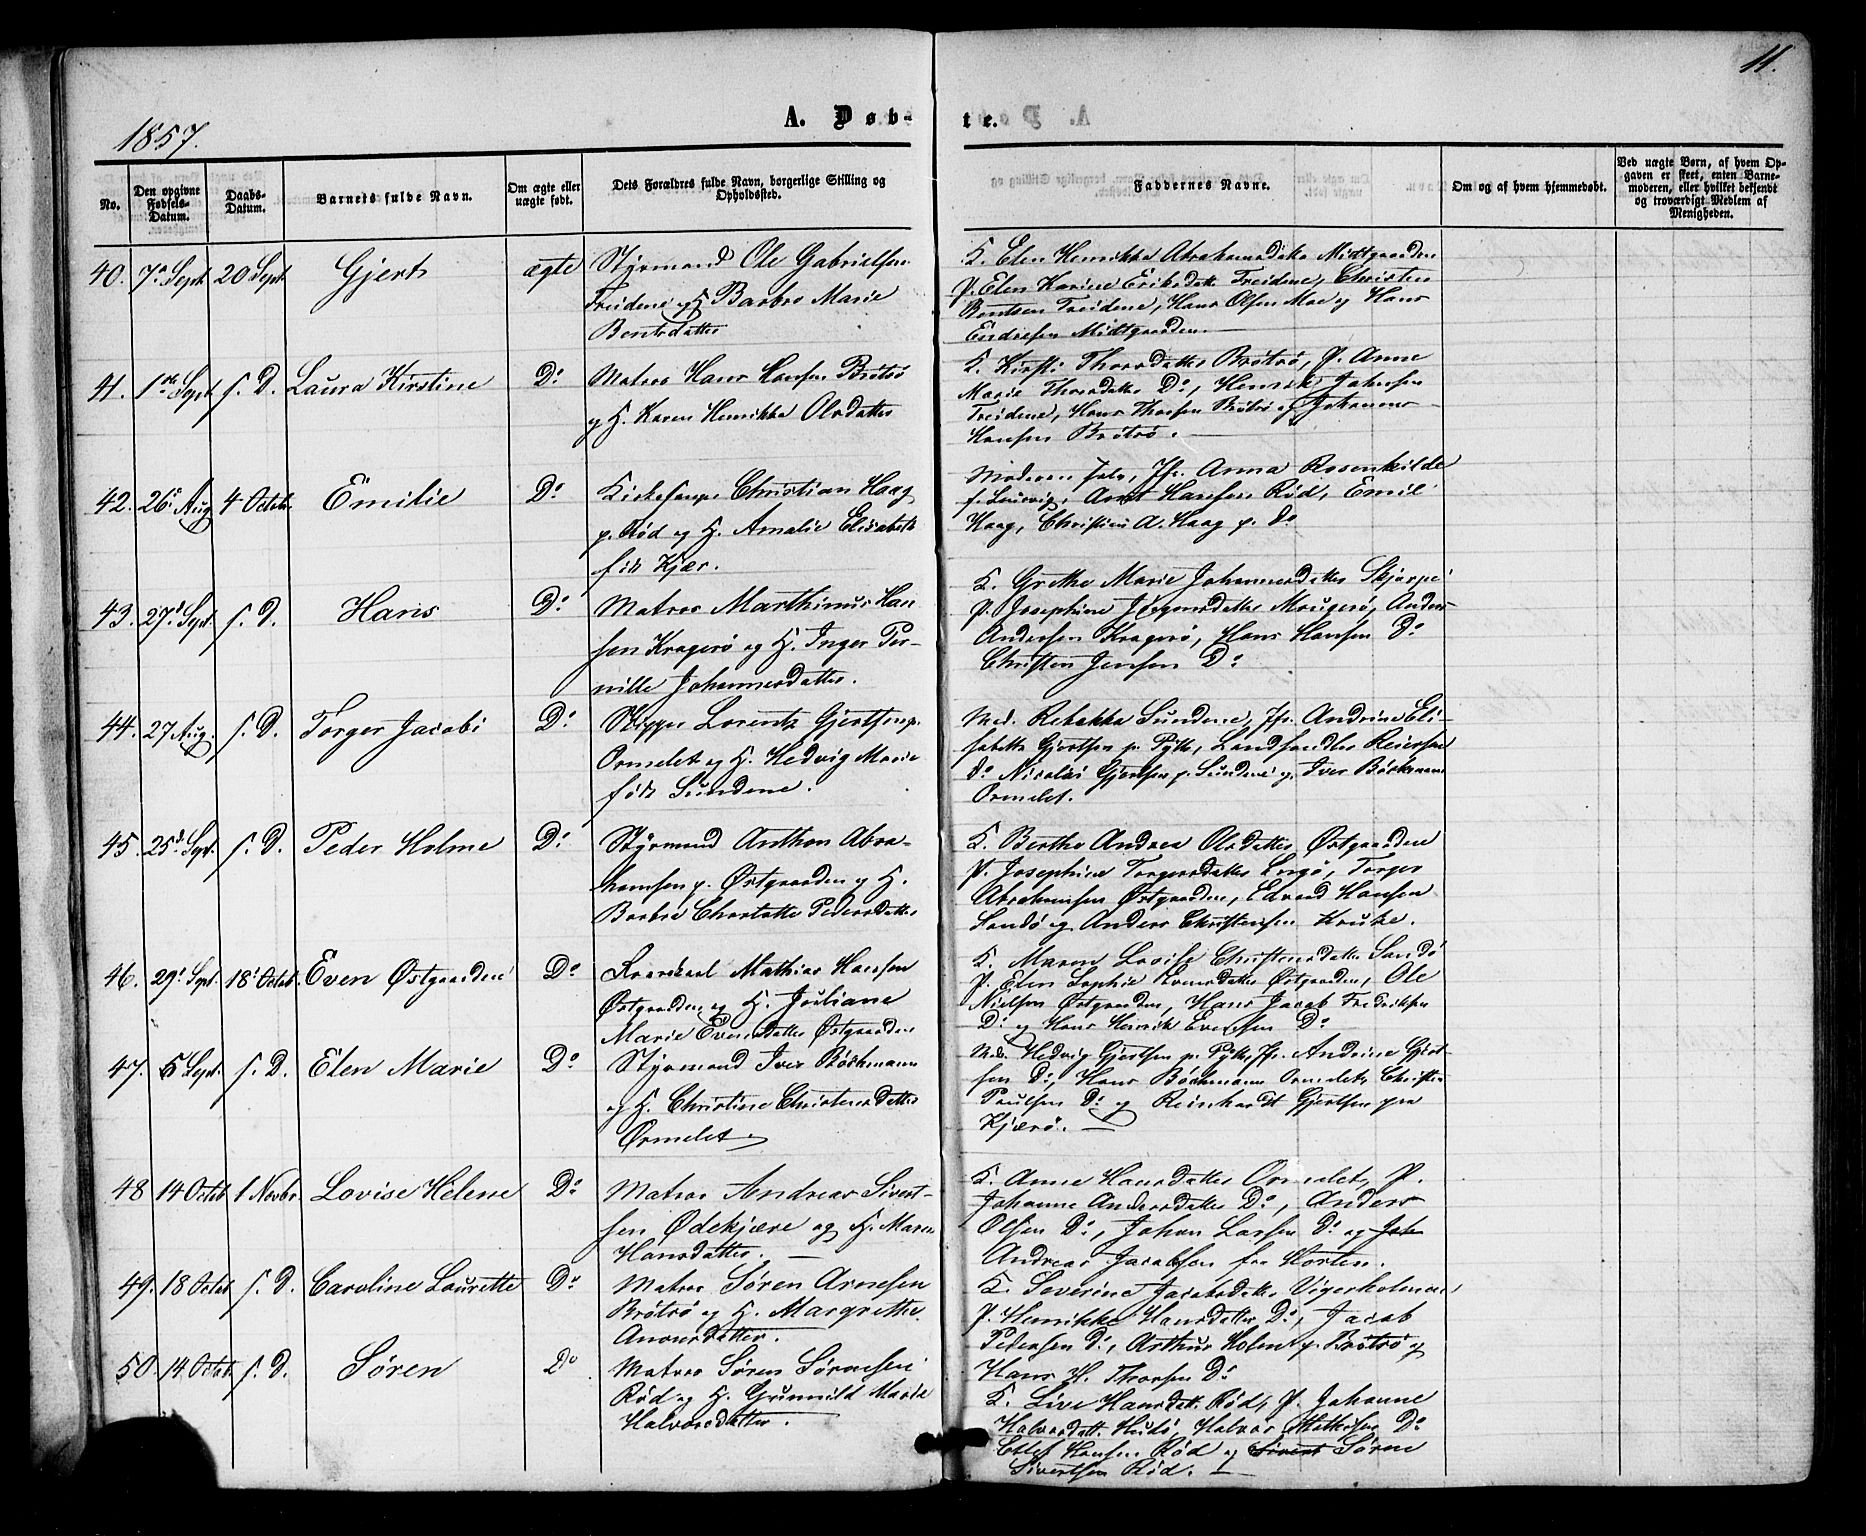 11.
1857.
A. Døb-
te.
No.
Den opgivne Fødsels-Datum.
Daabs-Datum.
Barnets fulde Navn.
Om ægte eller uægte født.
Dets Forældres fulde Navn, borgerlige Stilling og Opholdssted.
Faddernes Navne.
Om og af hvem hjemmedøbt.
Ved uægte Børn, af hvem Opgaven er skeet, enten Barnemoderen, eller hvilket bekjendt og troværdigt Medlem af Menigheden.
40. 7de Sept 20 Sept Gjert ægte Styrmand Ole Gabrielsen
Treidene og H. Barbro Marie
Bentsdatter
K. Elen Henrikke Abrahamsdatter Midtgaarden
P. Elen Karine Eriksdatt Treidene, Christen
Bentsen Treidene, Hans Olsen Moe og Hans
Endresen Midtgaarden.
41. 1ste Sept s. D. Laura Kirstine Do Matros Hans Hansen Brötsö
og H. Karen Henrikke Olsdatter
K. Kirsti Thorsdatter Brötsö, P. Anne
Marie Thorsdatter Do, Henrik Johnsen
Treidene, Hans Thorsen Brötsö og Johannes
Hansen Brötsö.
42. 26 Aug 4 Octob. Emilie Do Kirkesanger Christian Haag
p. Rød og H. Amalie Elisabeth
født Kjær.
Moderen selv, Jfr. Anna Rosenkilde
f. Laurvig, Amt Hansen Rød, Emil
Haag, Christian A. Haag p. do
43. 27d Sept. s. D. Hans Do Matros Marthinus Han
sen Kragerö og H. Inger Per-
nille Johannesdatter.
K. Grethe Marie Johannesdatter Skjærpe
P. Josephine Jörgensdatter Mougerö, Anders
Andersen Kragerö, Hans Hansen Do
Christen Jensen Do
44. 27 Aug. s. D. Torger Jacobi Do Skipper Lorentz Gjertsen p.
Ormelet og H. Hedvig Marie
født Sundene.
Mad. Rebekka Sundene, Jfr. Andrine Eli-
sabeth Gjertsen p. Pytte, Landhandler Reiersen
do Nicolai Gjertsen p. Sundene og Iver Böckmann
Ormelet.
45. 25d Sept. s. D. Peder Holme Do Styrmand Anthon Abra-
hamsen p. Østgaarden og H.
Barbro Charlotte Pedersdatter
K. Berthe Andrea Olsdatter Østgaarden
P. Josephine Torgersdatter Lingö, Torger
Abrahamsen Østgaarden, Edvard Hansen
Sandö og Anders Christensen Kruke.
46. 29d Sept. 18d Octob. Even Østgaarden Do Mathias Hansen
Østgaarden og H. Juliane
Marie Evensdatter Østgaarden
K. Maren Lovise Christensdatter Sandö
P. Elen Sophie Evensdatter Østgaarden, Ole
Nielsen Østgaarden, Hans Jacob Fredriksen
Do og Hans Henrik Evensen Do
47. 5 Sept. s. D. Elen Marie Do Styrmand Iver Böckmann
og H. Christine Christensdatter
Ormelet
Mad. Hedvig Gjertsen p. Pytte, Jfr. Andrine Gjert-
sen Do, Hans Böckmann Ormelet, Christen
Paulsen Do og Reinhardt Gjertsen fra
Kjærö.
48 14 Octob 1 Novbr Lovise Helene Do Matros Andreas Sivert-
sen Ødekjære og H. Maren
Hansdatter.
K. Anne Hansdatter Ormelet, P.
Johanne Andersdatter Do, Anders
Olsen Do, Johan Larsen Do og Joh
Andreas Jacobsen fra Horten.
49. 18 Octob s. D. Caroline Laurette Do Matros Søren Arnesen
Brötsö og H. Margrethe
Anonsdatter.
K. Severine Jacobsdatter Vigerholmen
P. Henrikke Hansdatter Do, Jacob
Pedersen Do, Arthur Holm p. Brötsö og
Hans H. Thorsen Do
50. 14 Octob s. D. Søren Do Matros Søren Sørnesen
Rød og H. Gunnild Marie
Halvorsdatter.
K. Live Hansdat. Rød, P. Johanne
Halvorsdatt. Hudö, Halvor Do
Hansen Rød og Sivert Søren
Sivertsen Rød.